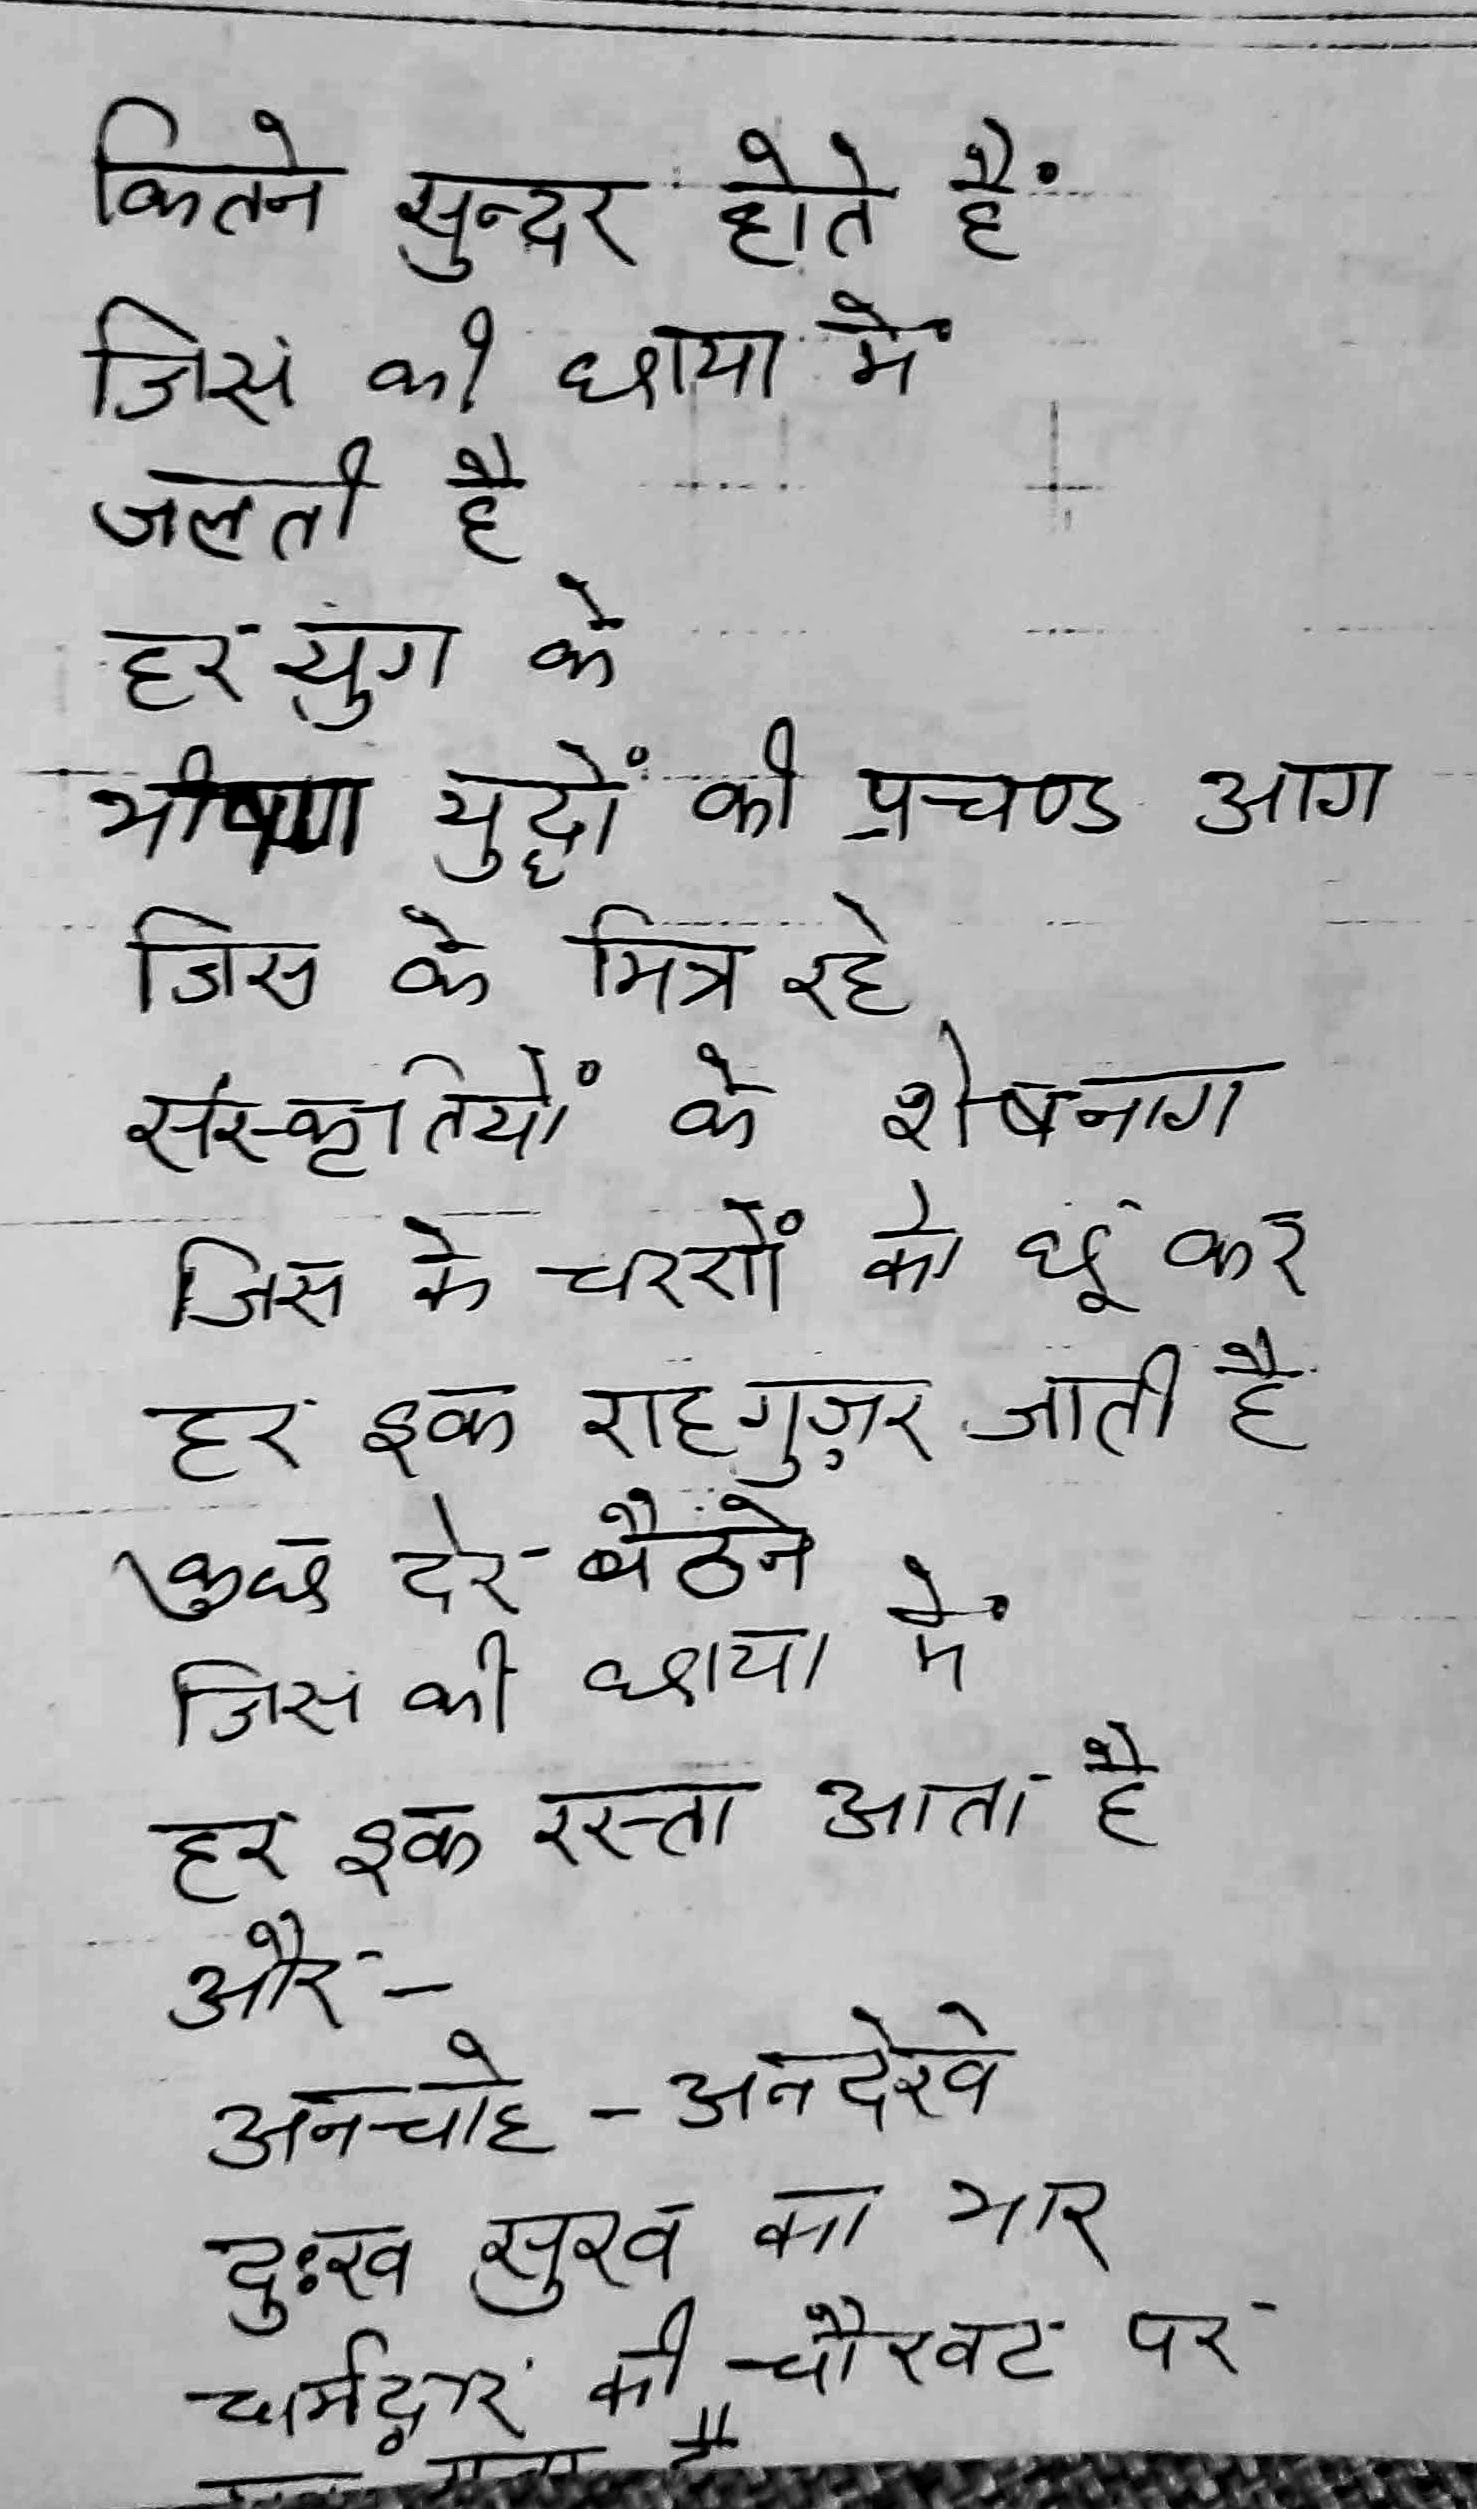 कितने सुन्दर होते हैं
जिस की छाया में
जलती है
हर युग के
भीषण युद्धों की प्रचण्ड आग
जिस के मित्र रहे
संस्कृतियों के शेषनाग
जिस के चरणों को छू कर
हर इक राह गुज़र जाती है
कुछ देर बैठने
जिस की छाया में
हर इक रस्ता आता है
और –
अनचाहे – अनदेखे
दुःख सुख का भार
धर्मद्वार की चौखट पर